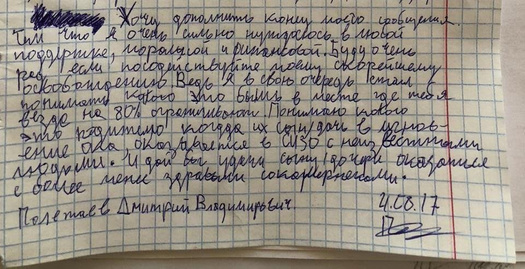 Хочу дополнить конец моего сообщения.
Тем что я очень сильно нуждаюсь в любой
поддержке, моральной и финансовой. Буду очень
рад если посодействуете моему скорейшему
освобождению. Ведь я в свою очередь стал
понимать какого это быть в месте где тебя
везде на 80% ограничивают. Понимаю какого
это родителю когда их сын/дочь в
оказывается в СИЗО с неизвестными
людьми. И дай бог удачи сыну/дочери оказаться
с более менее здравыми сокамерниками.
Полетаев Дмитрий Владимирович 4.08.17